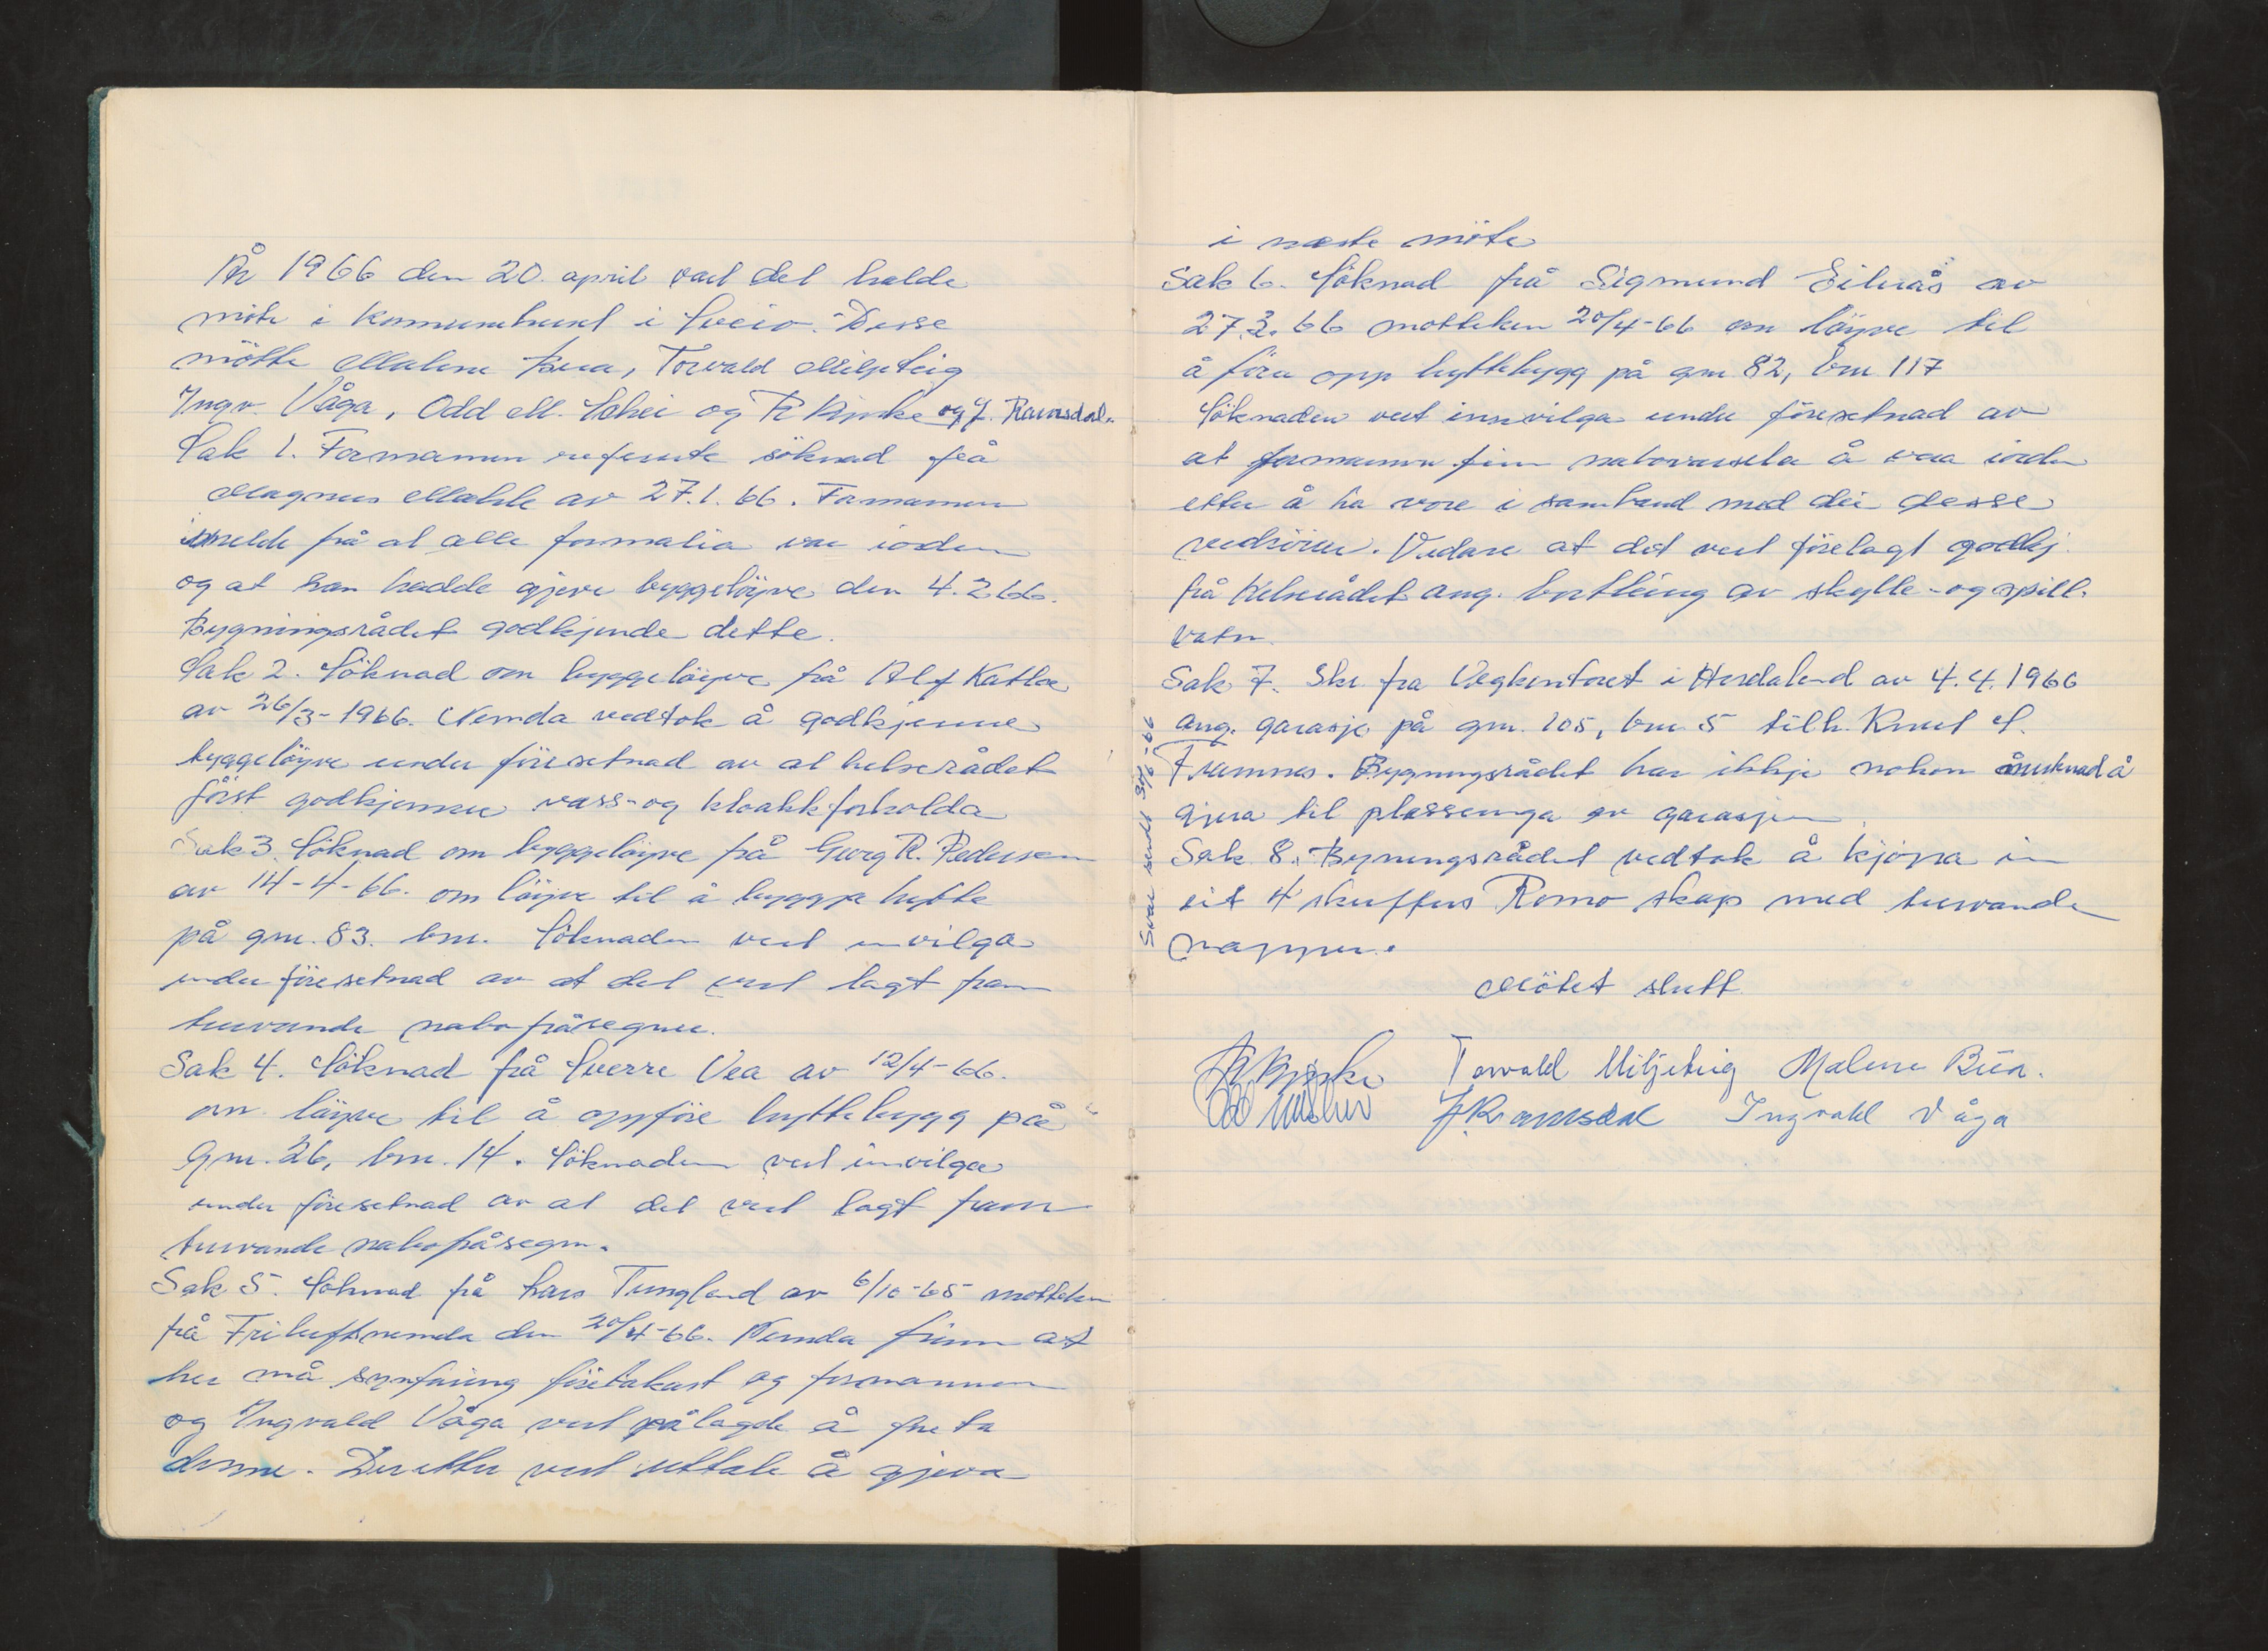 År 1966 den 20. april vart det halde
möte i kommunehuset i Sveio. Desse
møtte Malene Bua, Torvald Miljeteig
Ingv. Våga, Odd M. Lohei og R Bjerke og J. Ramsdal.
Sak 1. Formannen refererte söknad frå
Magnus av 27.1.66. Formannen
melde frå at alle formalia var iorden
og at han hadde gjeve byggelöyve den 4.2 66.
Bygningsrådet godkjende dette.
Sak 2. Söknad om byggelöyve frå Alf Katla
av 26/3-1966. Nemda vedtok å godkjenne
byggelöyve under föresetnad av at helserådet
först godkjenner vass- og kloakkforholda
Sak 3. Söknad om byggelöyve frå Georg R. Pedersen
av 14-4-66. om löyve til å byggja hytte
på gnr. 83. bnr. Söknaden vert invilga
under föresetnad av at det vert lagt fram
turvande nabofråsegner.
Sak 4. Söknad frå Sverre Vea av 12/4-66.
om löyve til å oppföre hyttebygg på
Gnr. 26, bnr. 14. Söknaden vert invilga
under föresetnad av at det vert lagt fram
turvande nabofråsegn.
Sak 5. Söknad frå Lars Tungland av 6/10-65 motteken
frå Friluftsnemda den 20/4-66. Nemda finn at
her må synfaring företakast og formannen
og Ingvald Våga vert pålagde å foreta
denne. Deretter vert uttale å gjeva
i neste möte
Sak 6. Söknad frå Sigmund Eilerås av
27.3.66 motteken 20/4-66 om löyve til
å föra opp hyttebygg på gnr 82, bnr 117
Söknaden vert innvilga under föresetnad av
at formannen finn nabovarsla å vera iorden
etter å ha vore i samband med dei desse
vedrörer. Vidare at det vert förelagt godkj.
frå Helserådet ang. bortleiing av skylle- og spill-
vatn.
Sak 7. Skr. fra Vegkontoret i Hordaland av 4.4.1966
ang. garasje på gnr. 105, bnr 5 tilh. Knut S.
Framnes. Bygningsrådet har ikkje nokon merknad å
gjera til plasseringa av garasjen.
Sak 8. Bygningsrådet vedtok å kjöpa in
eit 4 skuffers Romo skap med turvande
mapper.
Svar sendt 3/6-66
Mötet slutt
R Bjerke Torvald Miljeteig Malene Bua.
J Ramsdal Ingvald Våga